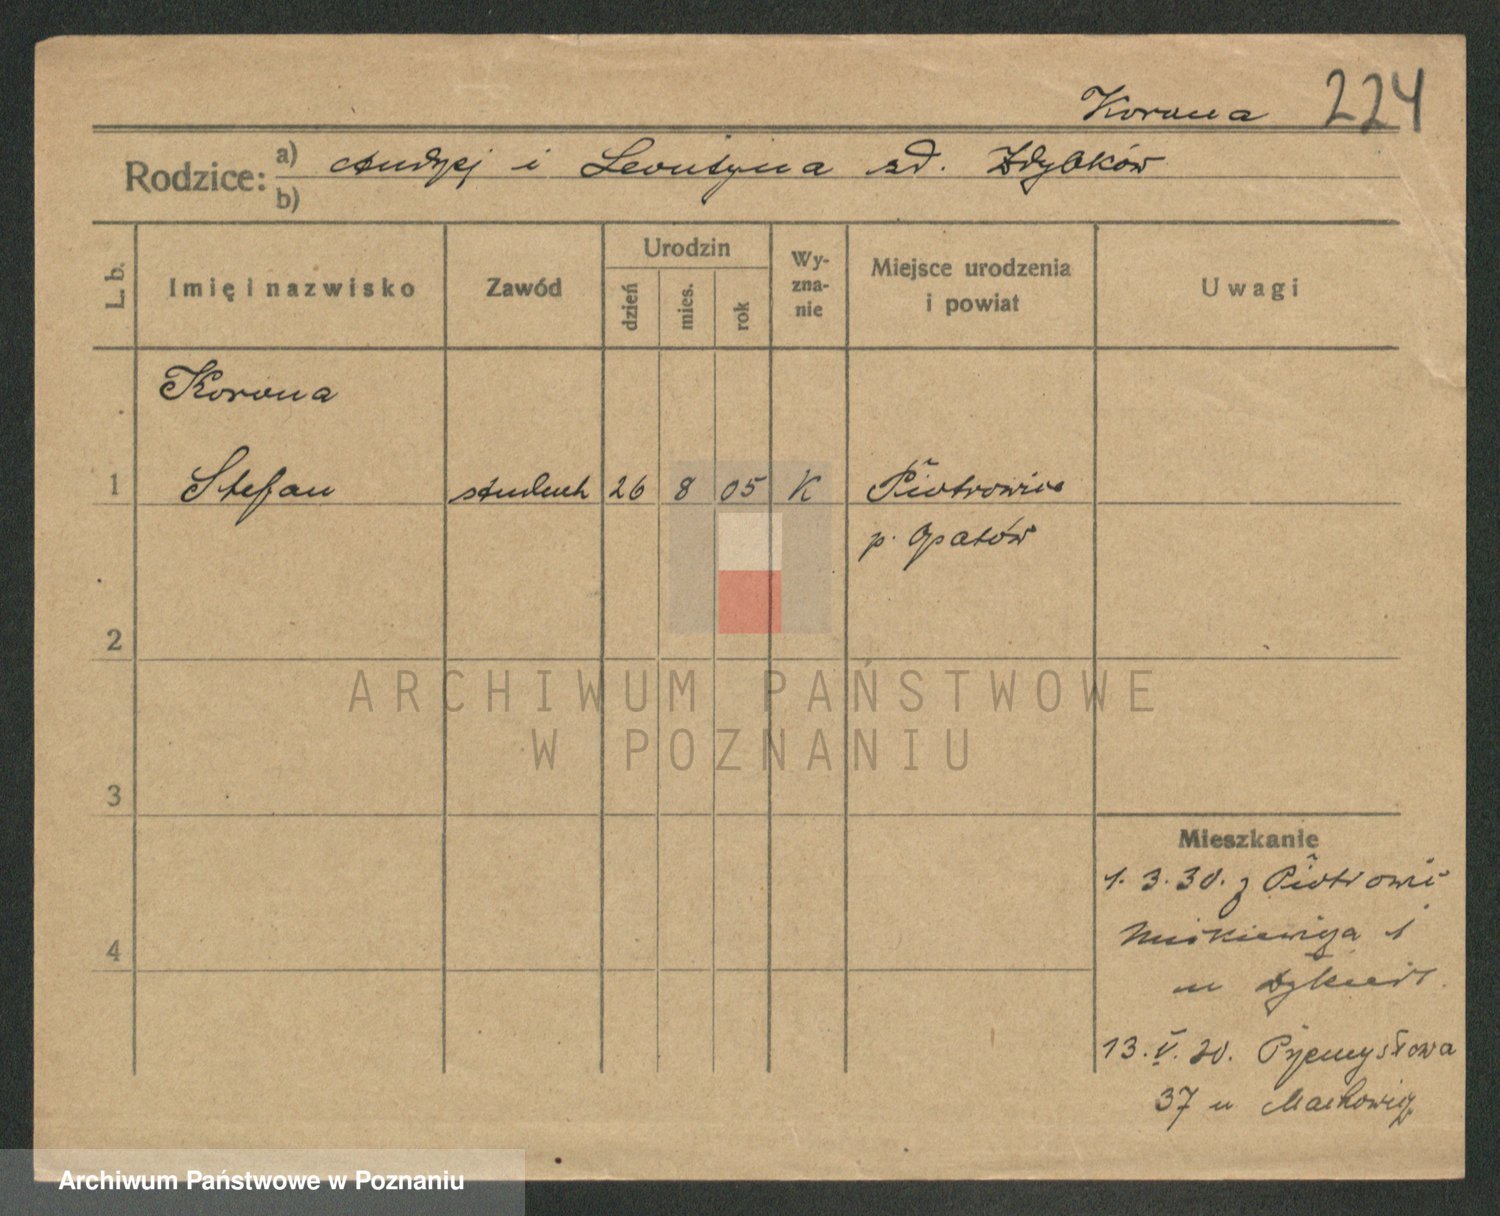 Korona 224
Rodzice: a) Andrzej i Leontyna zd. Zdybków
b)
L. b. Imię i nazwisko Zawód Urodzin dzień mies. rok Wy-zna-nie Miejsce urodzenia i powiat Uwagi
Korona
1 Stefan student 26 8 05 K Piotrowice
p. Opatów
2
ARCHIWUM PAŃSTWOWE
W POZNANIU
3
Mieszkanie
1. 3. 30. z Piotrowic
Mickiewicza 1
4
u
13. V. 30. Przemysłowa
37 u
Archiwum Państwowe w Poznaniu